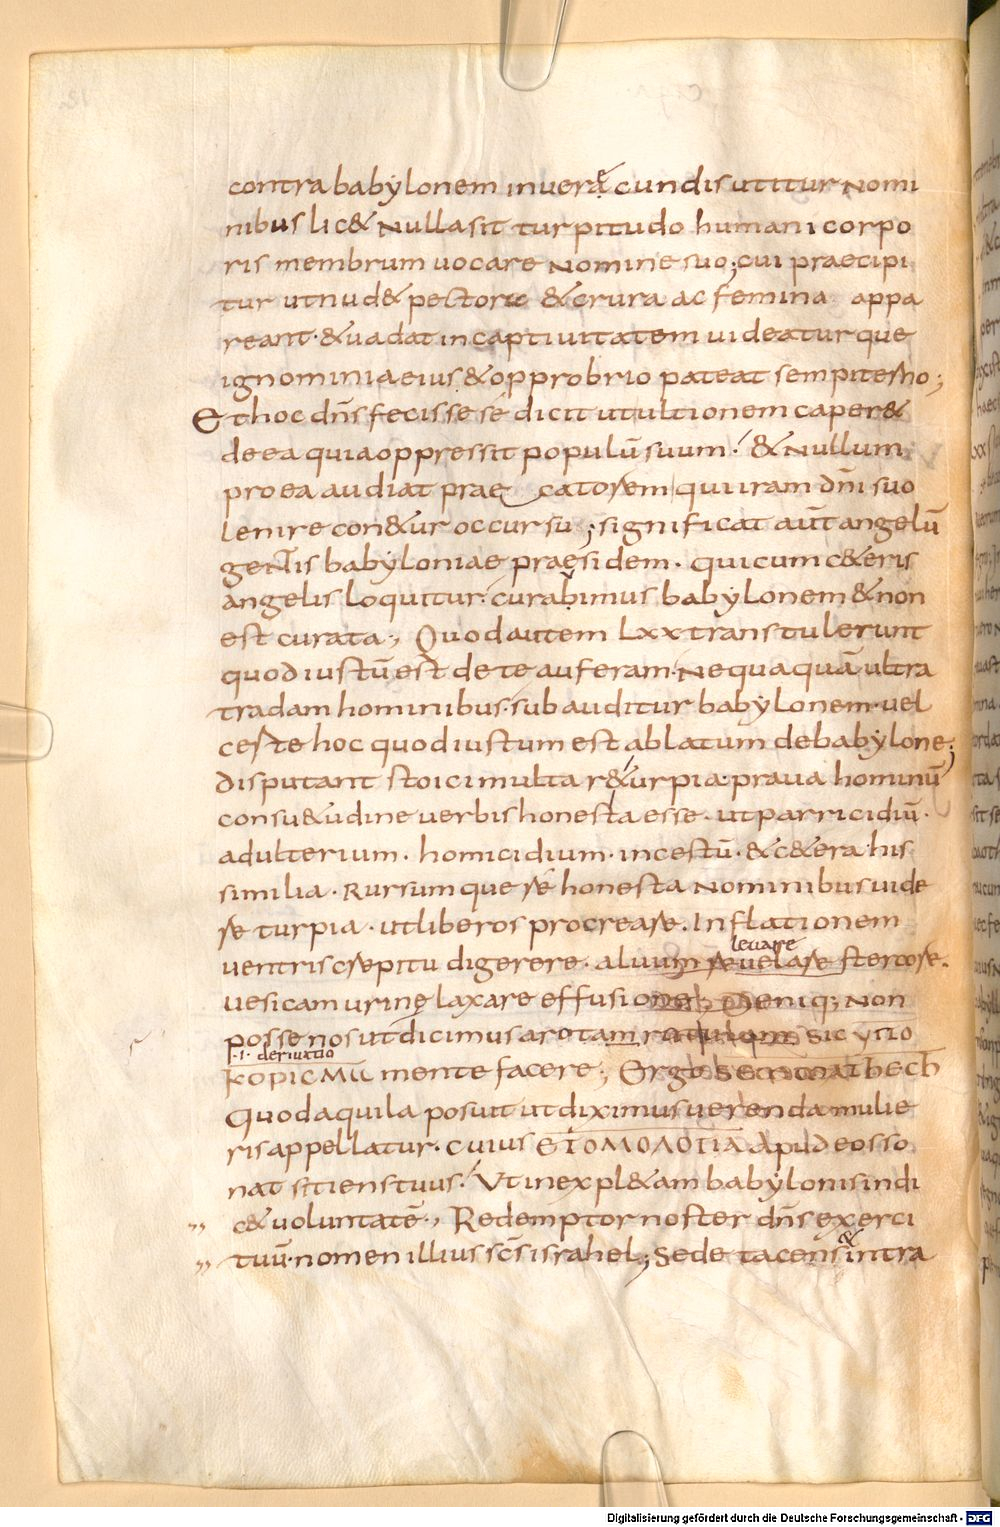 contra babylonem inverę́cundis utitur nomi
nibus lic& nulla sit turpitudo humani corpo
ris membrum uocare nomine suo; cui praecipi
tur ut nud& pectore &crura ac femina appa
reant· &uadat in captiuitatem uideatur que
ignominia eius &opprobrio pateat sempiterno;
Et hoc dn̄s fecisse se dicit ut ultionem caper&
de ea quia oppressit populū suum· &nullum
pro ea audiat praecatorem qui iram dn̄i suo
lenire con&ur occursu; significat aūt angelū
gentis babyloniae praesidem· qui cum c&eris
angelis loquitur· curabimus babylonem &non
est curata; Quod autem lxx transtulerunt
quod iustū est de te auferam· Nequaquā ultra
tradam hominibus· subauditur babylonem· uel
certe hoc quod iustum est ablatum de babylone;
Disputant stoici multa r& urpia praua hominū
consu&udine uerbis honesta esse· ut parricidiū·
adulterium· homicidium· incestū· &c&era his
similia· Rursum que re honesta nominibus uide
re turpia· ut liberos procreare. Inflationem
levare
uentris crepitu digerere· aluum reuelare stercore·
uesicam urinę laxare effusione; Deniq; non
posse nos ut dicimus a rota sicytio
·i· derivatio
mente facere; Ergo bech
Quod aquila posuit ut diximus uerenda mulie
ris appellatur· cuius ετομολογια apud eos so
nat sitiens tuus· Ut inexpl&am babylonis indi
c& uoluntatē; Redemptor noster dn̄s exerci
&
tuū· nomen illius sc̄s israhel; Sede tacens intra
Digitalisierung gefördert durch die Deutsche Forschungsgemeinschaft - DFG